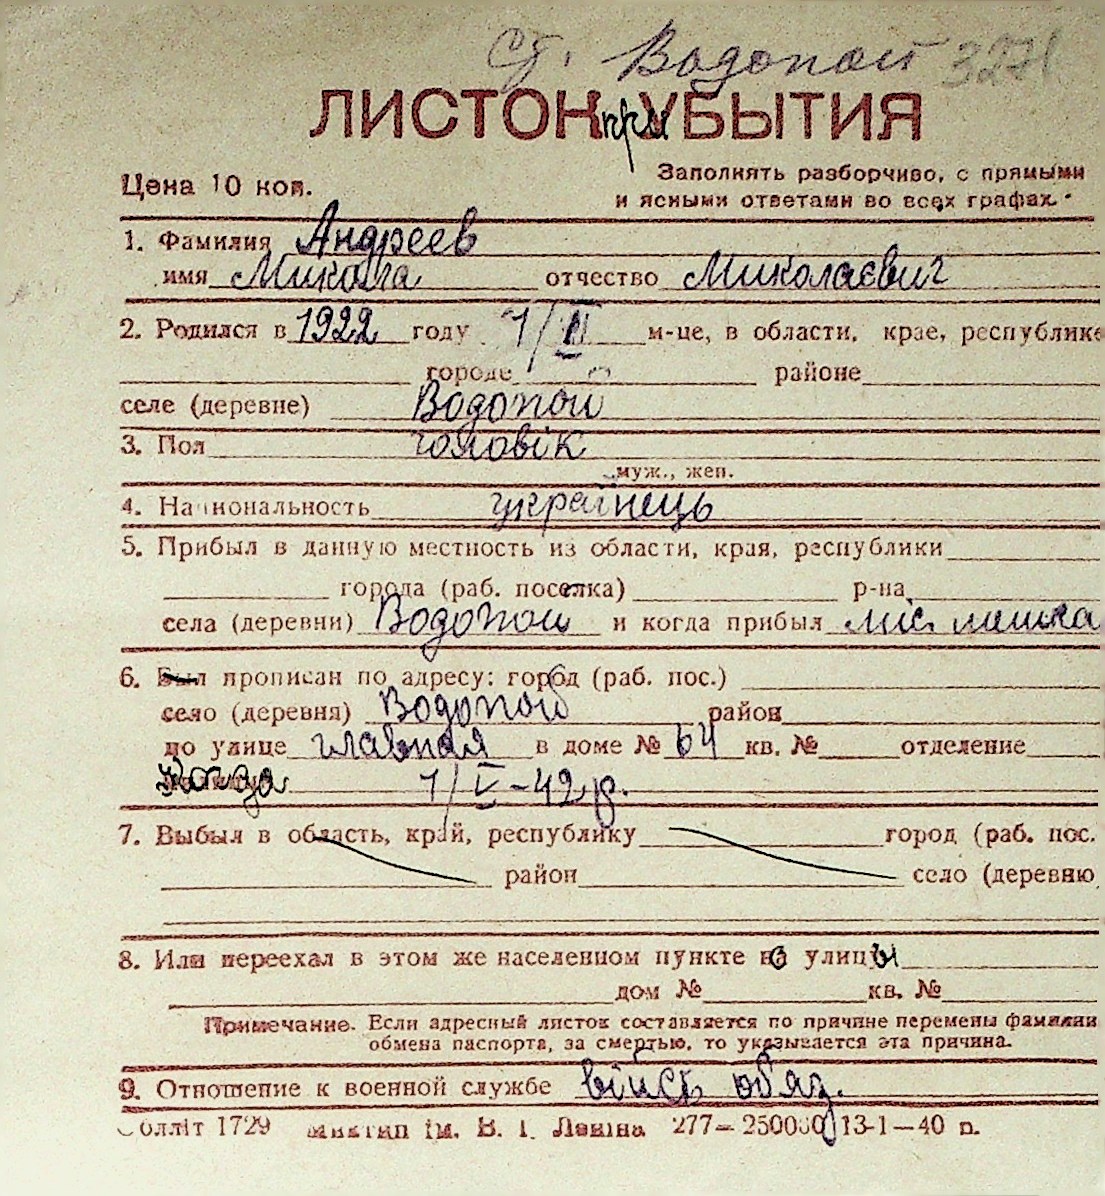 Ст. Водопой 3271
ЛИСТОК при УБЫТИЯ
Цена 10 коп.
Заполнять разборчиво, с прямыми
и ясными ответами во всех графах.
1. Фамилия Андреев
имя Микола отчество Миколаєвич
2. Родился в 1922 году 1/II м-це, в области, крае, республике
городе районе
селе (деревне) Водопой
3. Пол чоловік
муж., жен.
4. Национальность українець
5. Прибыл в данную местность из области, края, республики
города (раб. поселка) р-на
села (деревни) Водопой и когда прибыл міс. мешка
6. Был прописан по адресу: город (раб. пос.)
село (деревня) Водопой район
по улице главная в доме № 64 кв. № отделение
Когда 1/V-42 р.
7. Выбыл в область, край, республику город (раб. пос.
район село (деревню
8. Или переехал в этом же населенном пункте по улицы
дом № кв. №
Примечание. Если адресный листок составляется по причине перемены фамилии
обмена паспорта, за смертью, то указывается эта причина.
9. Отношение к военной службе військ обяз.
Оолліт 1729 ім. В. І. Леніна 277—250000 13-1—40 п.